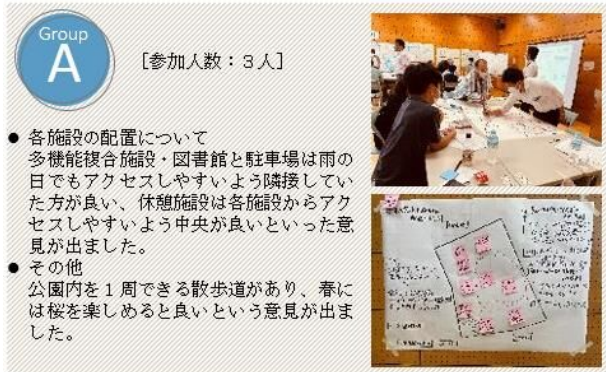 Group
A
［参加人数：３人］
● 各施設の配置について
多機能複合施設・図書館と駐車場は雨の
日でもアクセスしやすいよう隣接してい
た方が良い、休憩施設は各施設からアク
セスしやすいよう中央が良いといった意
見が出ました。
● その他
公園内を１周できる散歩道があり、春に
は桜を楽しめると良いという意見が出ま
した。